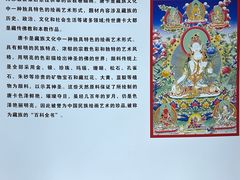 历史、政治、文化和社会生活等诸多领域,传世唐卡大都是藏传佛教和本教作品。
唐卡是藏族文化中一种独具特色的绘画艺术形式,具有鲜明的民族特点、浓郁的宗教色彩和独特的艺术风格,用明亮的色彩描绘出神圣的佛的世界。颜料传统上是全部采用金、银、珍珠、玛瑙、珊瑚、松石、孔雀石、朱砂等珍贵的矿物宝石和藏红花、大黄、蓝靛等植物为颜料,以示其神圣。这些天然原料保证了所绘制的唐卡色泽鲜艳,璀璨夺目,虽经几百年的岁月,仍是色泽艳丽明亮。因此被誉为中国民族绘画艺术的珍品,被称为藏族的“百科全书”。